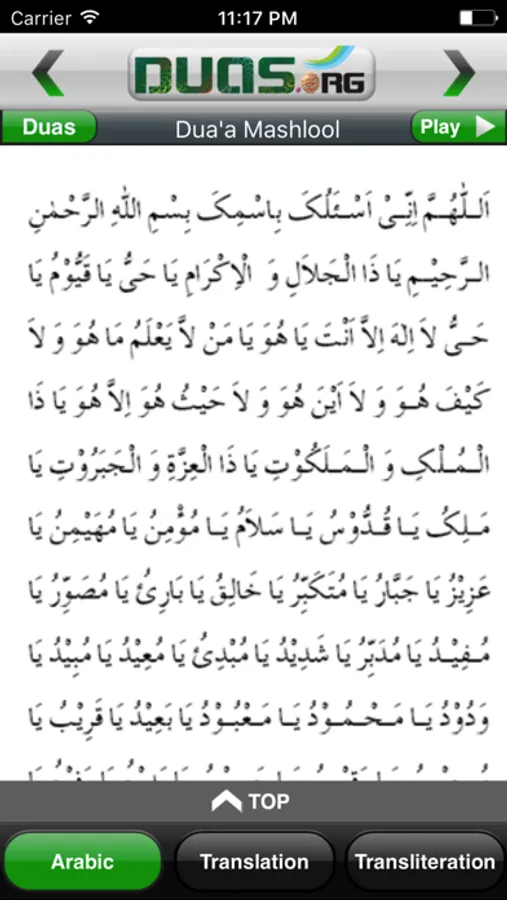 Carrier 11:17 PM
DUAS.ORG
Duas Dua'a Mashlool Play
اَللّٰهُمَّ اِنِّیْ اَسْئَلُکَ بِاسْمِکَ بِسْمِ اللهِ الرَّحْمٰنِ
الرَّحِیْمِ یَا ذَا الْجَلَالِ وَ الْاِکْرَامِ یَا حَیُّ یَا قَیُّوْمُ یَا
حَیُّ لَا اِلٰهَ اِلَّا اَنْتَ یَا هُوَ یَا مَنْ لَّا یَعْلَمُ مَا هُوَ وَ لَا
کَیْفَ هُوَ وَ لَا اَیْنَ هُوَ وَ لَا حَیْثُ هُوَ اِلَّا هُوَ یَا ذَا
الْمُلْکِ وَ الْمَلَکُوْتِ یَا ذَا الْعِزَّةِ وَ الْجَبَرُوْتِ یَا
مَلِکُ یَا قُدُّوْسُ یَا سَلَامُ یَا مُؤْمِنُ یَا مُهَیْمِنُ یَا
عَزِیْزُ یَا جَبَّارُ یَا مُتَکَبِّرُ یَا خَالِقُ یَا بَارِئُ یَا مُصَوِّرُ یَا
مُفِیْدُ یَا مُدَبِّرُ یَا شَدِیْدُ یَا مُبْدِئُ یَا مُعِیْدُ یَا مُبِیْدُ یَا
وَدُوْدُ یَا مَحْمُوْدُ یَا مَعْبُوْدُ یَا بَعِیْدُ یَا قَرِیْبُ یَا
TOP
Arabic Translation Transliteration